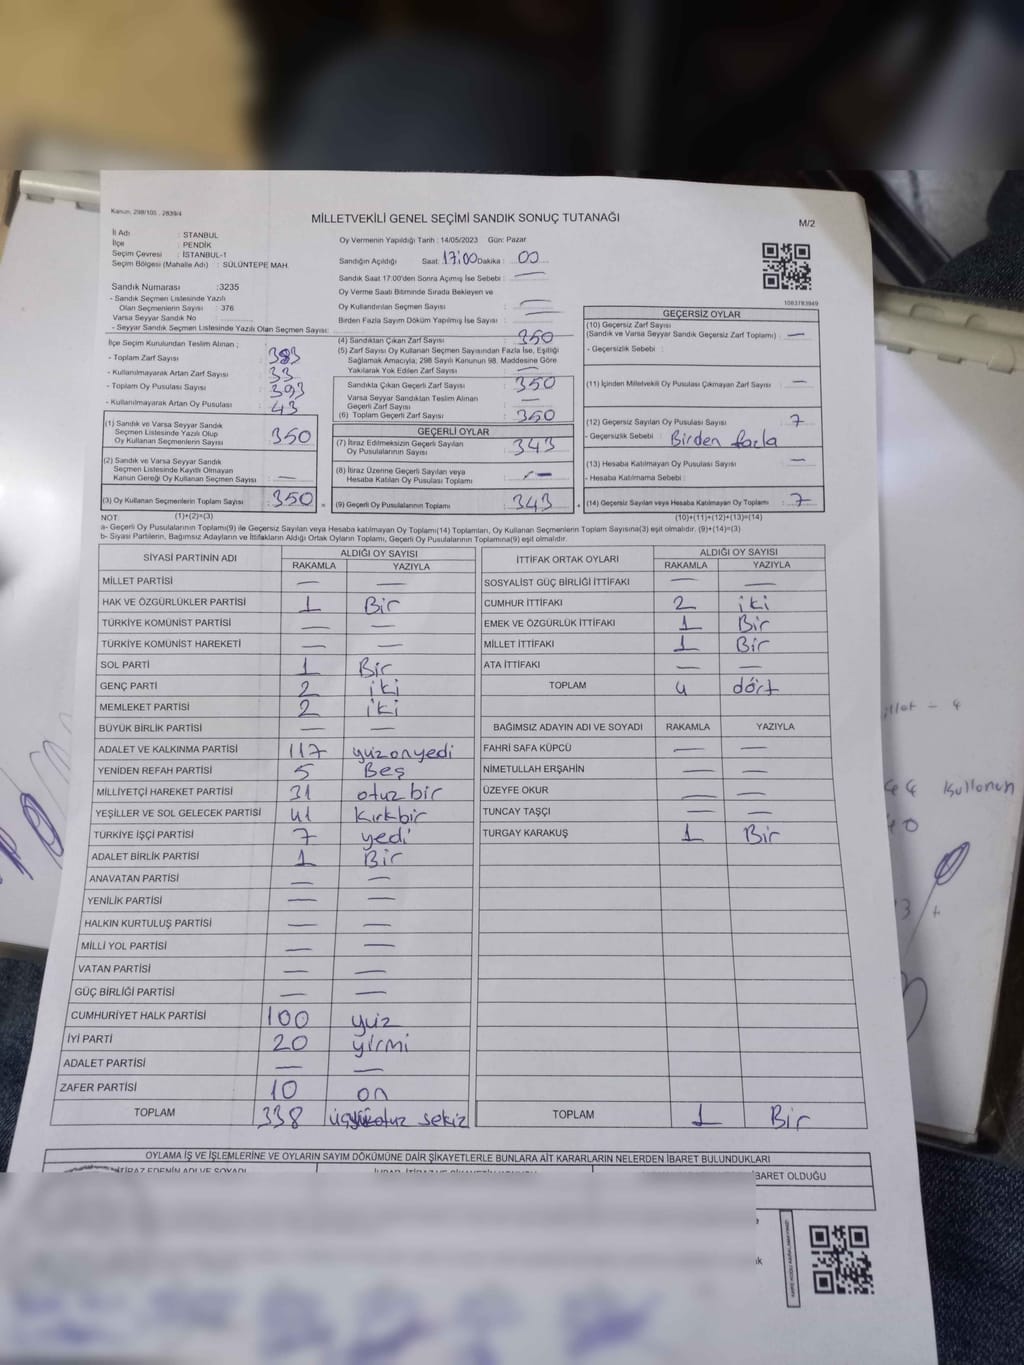 Kanun, 298/105 . 2839/4
MİLLETVEKİLİ GENEL SEÇİMİ SANDIK SONUÇ TUTANAĞI
M/2
İl Adı : STANBUL
İlçe : PENDİK
Seçim Çevresi : İSTANBUL-1
Seçim Bölgesi (Mahalle Adı) : SÜLÜNTEPE MAH.
Oy Vermenin Yapıldığı Tarih : 14/05/2023 Gün: Pazar
Sandığın Açıldığı Saat: 17:00 Dakika : 00
Sandık Saat 17:00'den Sonra Açımış İse Sebebi : —
Oy Verme Saati Bitiminde Sırada Bekleyen ve
Oy Kullandırılan Seçmen Sayısı : —
Birden Fazla Sayım Döküm Yapılmış İse Sayısı : —
Sandık Numarası :3235
- Sandık Seçmen Listesinde Yazılı
Olan Seçmenlerin Sayısı : 376
Varsa Seyyar Sandık No :
- Seyyar Sandık Seçmen Listesinde Yazılı Olan Seçmen Sayısı:
1083783949
İlçe Seçim Kurulundan Teslim Alınan ;
- Toplam Zarf Sayısı : 383
- Kullanılmayarak Artan Zarf Sayısı : 33
- Toplam Oy Pusulası Sayısı : 393
- Kullanılmayarak Artan Oy Pusulası : 43
(1) Sandık ve Varsa Seyyar Sandık
Seçmen Listesinde Yazılı Olup
Oy Kullanan Seçmenlerin Sayısı : 350
(2) Sandık ve Varsa Seyyar Sandık
Seçmen Listesinde Kayıtlı Olmayan
Kanun Gereği Oy Kullanan Seçmen Sayısı : —
(3) Oy Kullanan Seçmenlerin Toplam Sayısı : 350 =
(1)+(2)=(3)
(4) Sandıktan Çıkan Zarf Sayısı : 350
(5) Zarf Sayısı Oy Kullanan Seçmen Sayısından Fazla İse, Eşitliği
Sağlamak Amacıyla; 298 Sayılı Kanunun 98. Maddesine Göre
Yakılarak Yok Edilen Zarf Sayısı : —
Sandıkta Çıkan Geçerli Zarf Sayısı : 350
Varsa Seyyar Sandıktan Teslim Alınan
Geçerli Zarf Sayısı : —
(6) Toplam Geçerli Zarf Sayısı : 350
GEÇERLİ OYLAR
(7) İtiraz Edilmeksizin Geçerli Sayılan
Oy Pusulasının Sayısı : 343
(8) İtiraz Üzerine Geçerli Sayılan veya
Hesaba Katılan Oy Pusulası Toplamı : —
(9) Geçerli Oy Pusulalarının Toplamı : 343 +
GEÇERSİZ OYLAR
(10) Geçersiz Zarf Sayısı
(Sandık ve Varsa Seyyar Sandık Geçersiz Zarf Toplamı) : —
- Geçersizlik Sebebi :
(11) İçinden Milletvekili Oy Pusulası Çıkmayan Zarf Sayısı : —
(12) Geçersiz Sayılan Oy Pusulası Sayısı : 7
- Geçersizlik Sebebi : Birden fazla
(13) Hesaba Katılmayan Oy Pusulası Sayısı : —
- Hesaba Katılmama Sebebi :
(14) Geçersiz Sayılan veya Hesaba Katılmayan Oy Toplamı : 7
(10)+(11)+(12)+(13)=(14)
NOT:
a- Geçerli Oy Pusulalarının Toplamı(9) ile Geçersiz Sayılan veya Hesaba katılmayan Oy Toplamı(14) Toplamları, Oy Kullanan Seçmenlerin Toplam Sayısına(3) eşit olmalıdır. (9)+(14)=(3)
b- Siyasi Partilerin, Bağımsız Adayların ve İttifakların Aldığı Ortak Oyların Toplamı, Geçerli Oy Pusulalarının Toplamına(9) eşit olmalıdır.
SİYASİ PARTİNİN ADI ALDIĞI OY SAYISI
RAKAMLA YAZIYLA
MİLLET PARTİSİ — —
HAK VE ÖZGÜRLÜKLER PARTİSİ 1 Bir
TÜRKİYE KOMÜNİST PARTİSİ — —
TÜRKİYE KOMÜNİST HAREKETİ — —
SOL PARTİ 1 Bir
GENÇ PARTİ 2 iki
MEMLEKET PARTİSİ 2 iki
BÜYÜK BİRLİK PARTİSİ — —
ADALET VE KALKINMA PARTİSİ 117 yüzonyedi
YENİDEN REFAH PARTİSİ 5 Beş
MİLLİYETÇİ HAREKET PARTİSİ 31 otuz bir
YEŞİLLER VE SOL GELECEK PARTİSİ 41 Kırkbir
TÜRKİYE İŞÇİ PARTİSİ 7 yedi
ADALET BİRLİK PARTİSİ 1 Bir
ANAVATAN PARTİSİ — —
YENİLİK PARTİSİ — —
HALKIN KURTULUŞ PARTİSİ — —
MİLLİ YOL PARTİSİ — —
VATAN PARTİSİ — —
GÜÇ BİRLİĞİ PARTİSİ — —
CUMHURİYET HALK PARTİSİ 100 yüz
İYİ PARTİ 20 yirmi
ADALET PARTİSİ — —
ZAFER PARTİSİ 10 on
TOPLAM 338 üçyüzotuz sekiz
İTTİFAK ORTAK OYLARI ALDIĞI OY SAYISI
RAKAMLA YAZIYLA
SOSYALİST GÜÇ BİRLİĞİ İTTİFAKI — —
CUMHUR İTTİFAKI 2 iki
EMEK VE ÖZGÜRLÜK İTTİFAKI 1 Bir
MİLLET İTTİFAKI 1 Bir
ATA İTTİFAKI — —
TOPLAM 4 dört
BAĞIMSIZ ADAYIN ADI VE SOYADI RAKAMLA YAZIYLA
FAHRİ SAFA KÜPCÜ — —
NİMETULLAH ERŞAHİN — —
ÜZEYFE OKUR — —
TUNCAY TAŞÇI — —
TURGAY KARAKUŞ 1 Bir
TOPLAM 1 Bir
OYLAMA İŞ VE İŞLEMLERİNE VE OYLARIN SAYIM DÖKÜMÜNE DAİR ŞİKAYETLERLE BUNLARA AİT KARARLARIN NELERDEN İBARET BULUNDUKLARI
İTİRAZ EDENİN ADI VE SOYADI
BARET OLDUĞU
illet - 4
Kullanan